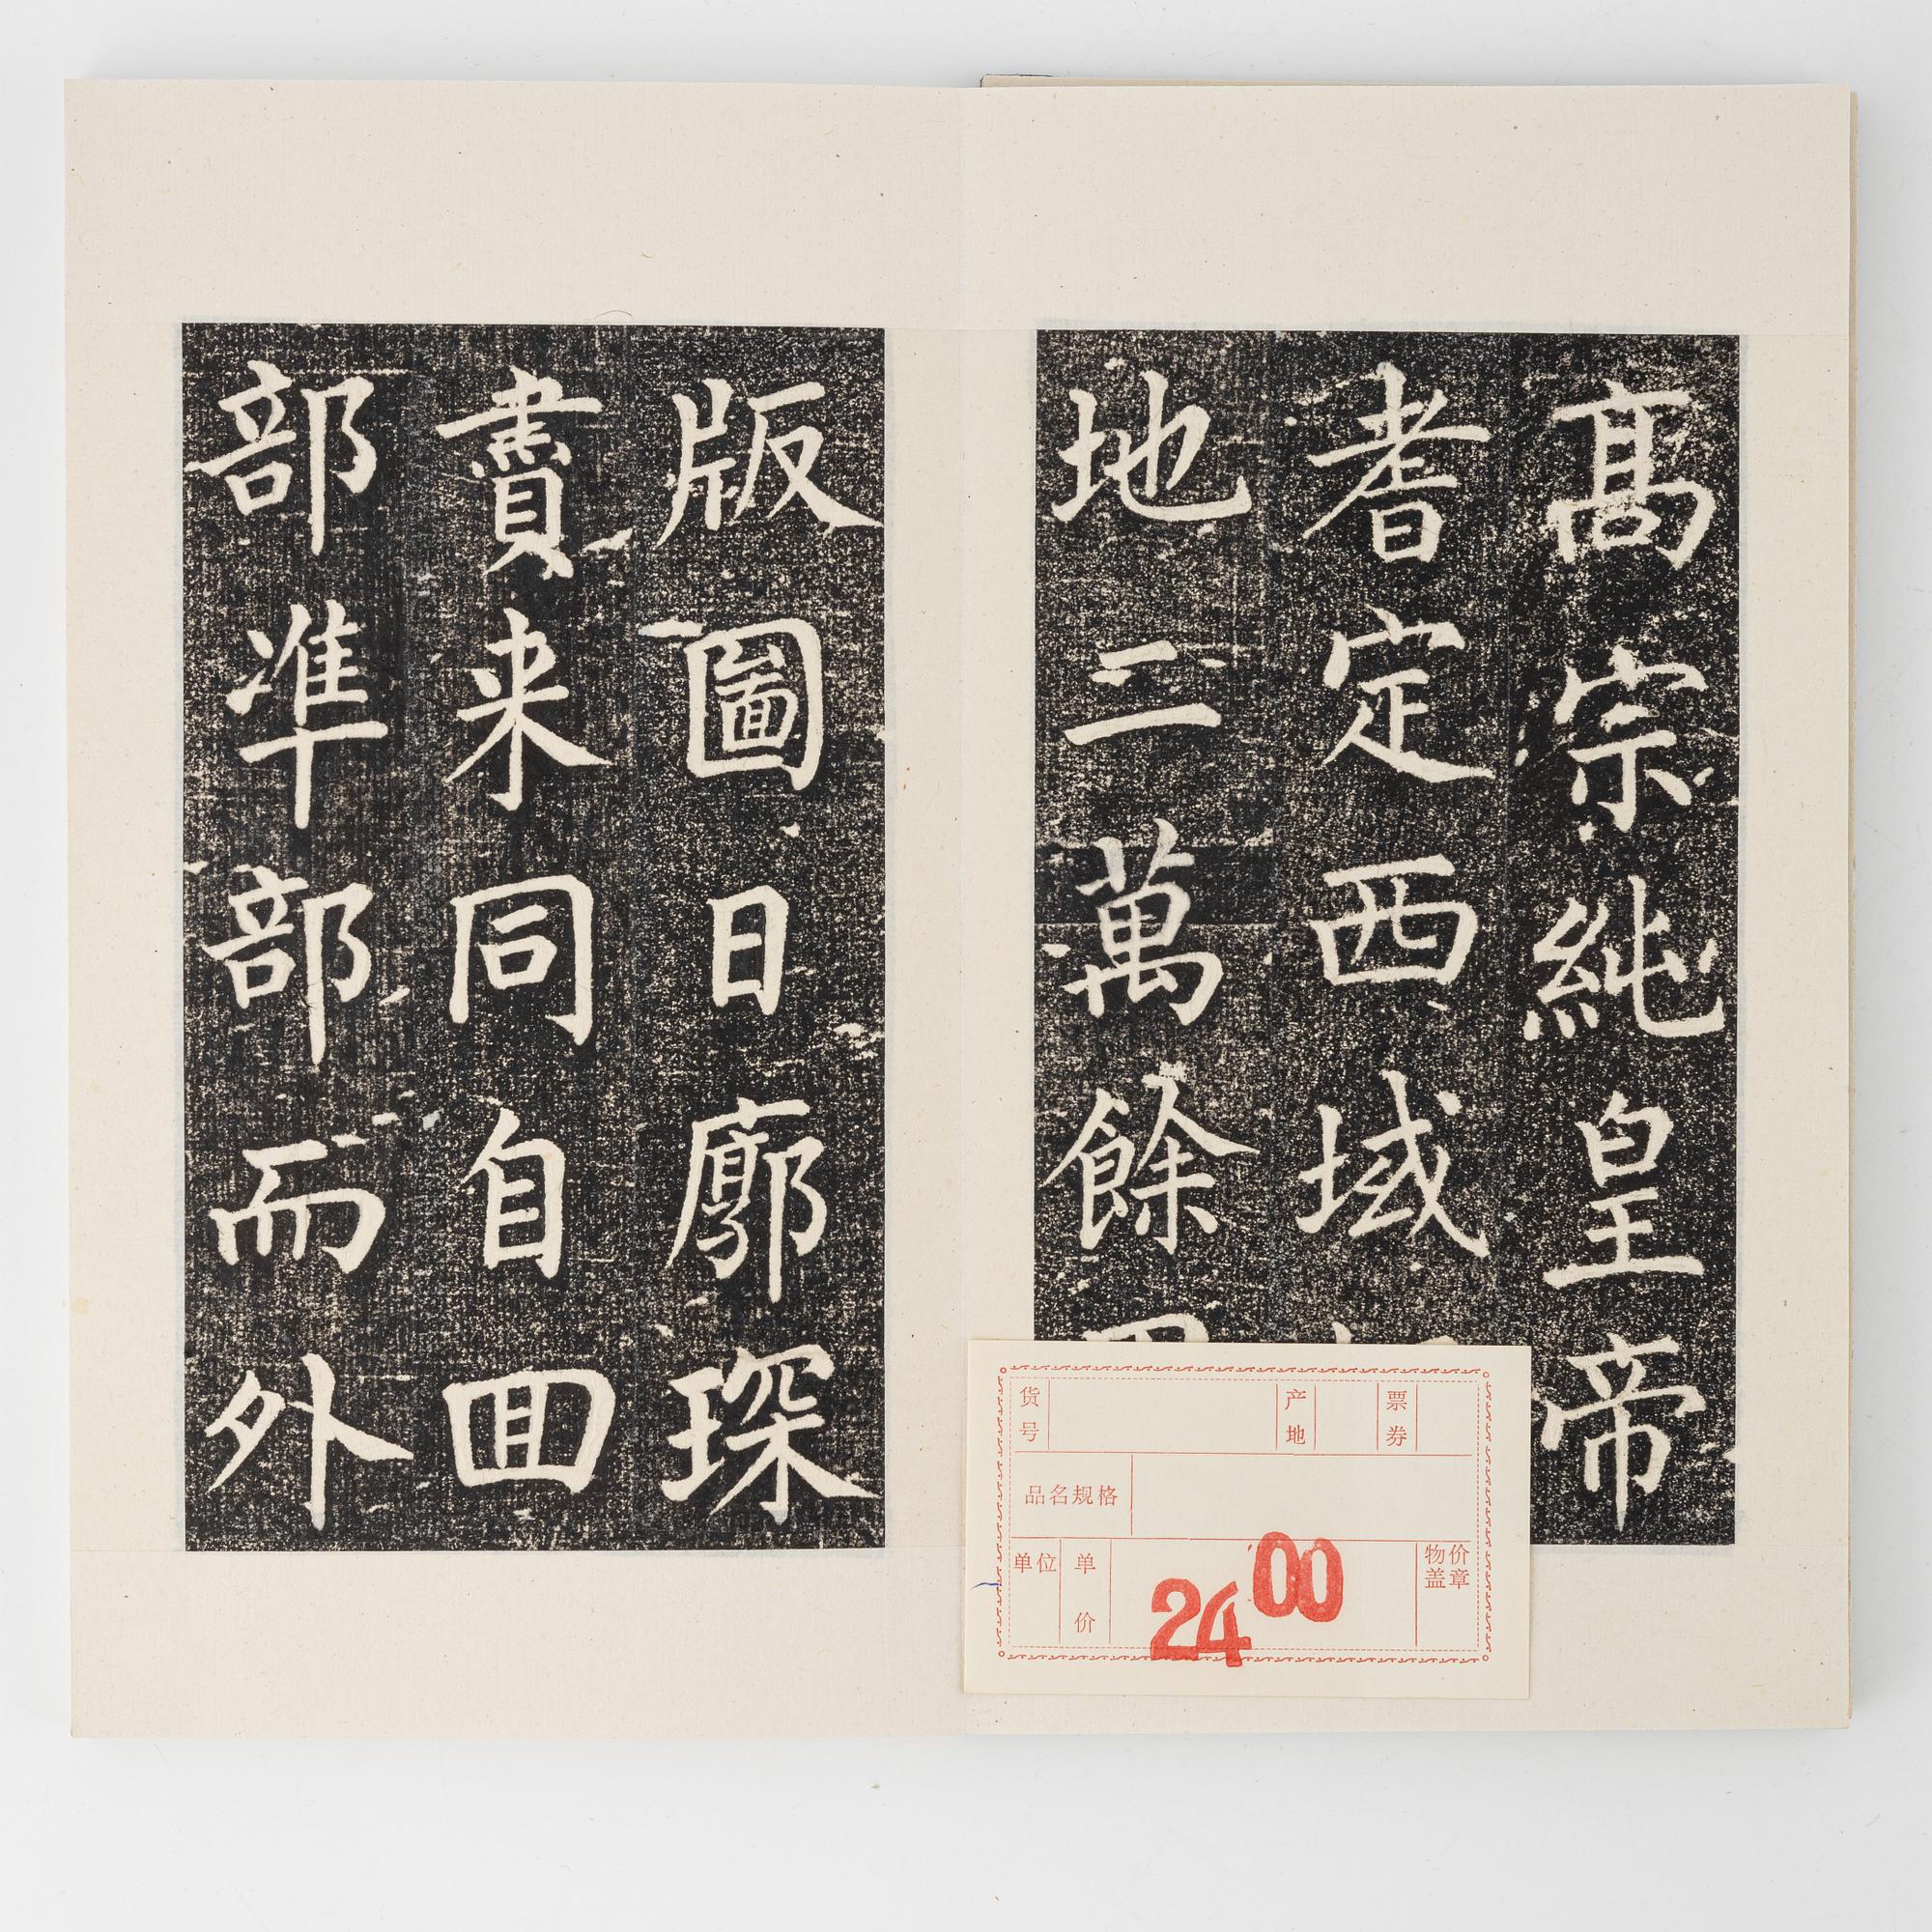 髙宗純皇帝
耆定西域
地二萬餘
版圖日廓琛
賮来同自回
部準部而外
货号
产地
票券
品名规格
单位
单价
2400
物价盖章